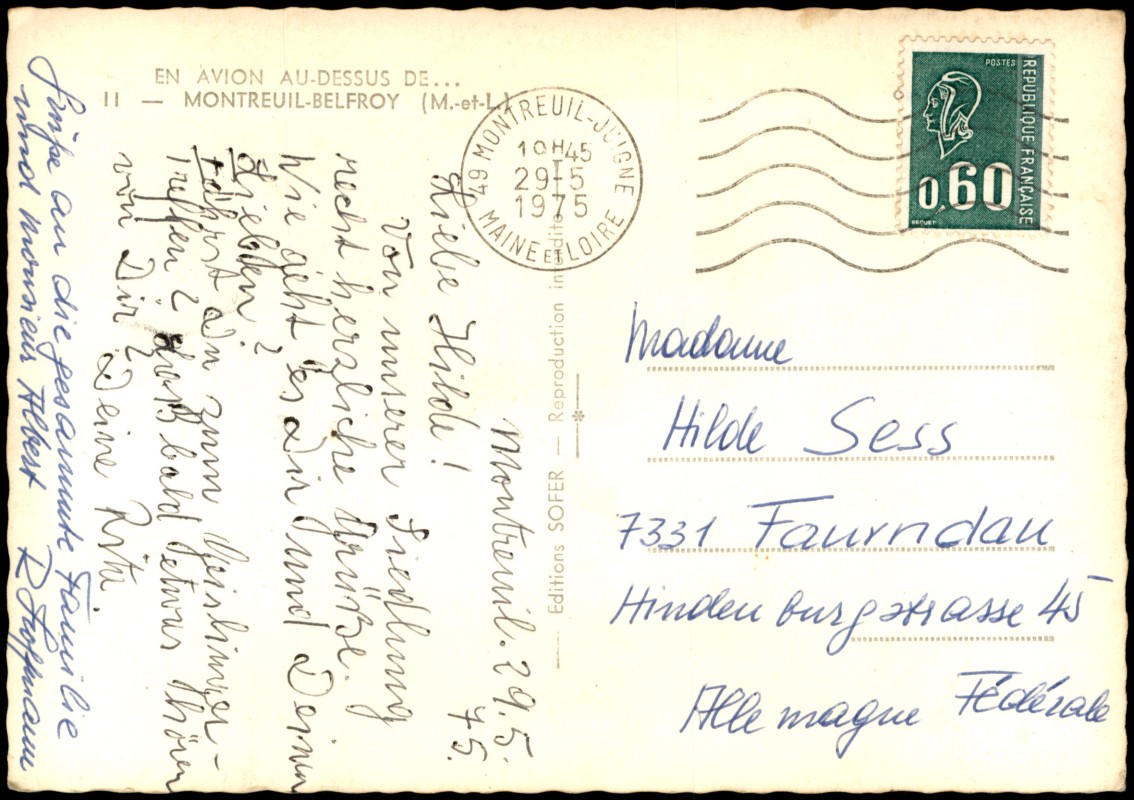 EN AVION AU-DESSUS DE...
11 — MONTREUIL-BELFROY (M.-et-L.)
49 MONTREUIL-JUIGNE
19H45
29-5
1975
MAINE ET LOIRE
POSTES
REPUBLIQUE FRANÇAISE
0,60
BEQUET
Montreuil. 29.5.
75.
Liebe Hilde!
Von unserer Siedlung
recht herzliche Grüße.
Wie geht es Dir und Deinen
Lieben?
Fährst Du zum Geislinger-
Treffen? Lass bald etwas hören
von Dir?
Deine Rita.
an die gesammte Familie
und monsieur Albert R Hoffmann
Editions SOFER — Reproduction interdite
Madame
Hilde Sess
7331 Faurndau
Hindenburgstrasse 45
Allemagne Fédérale